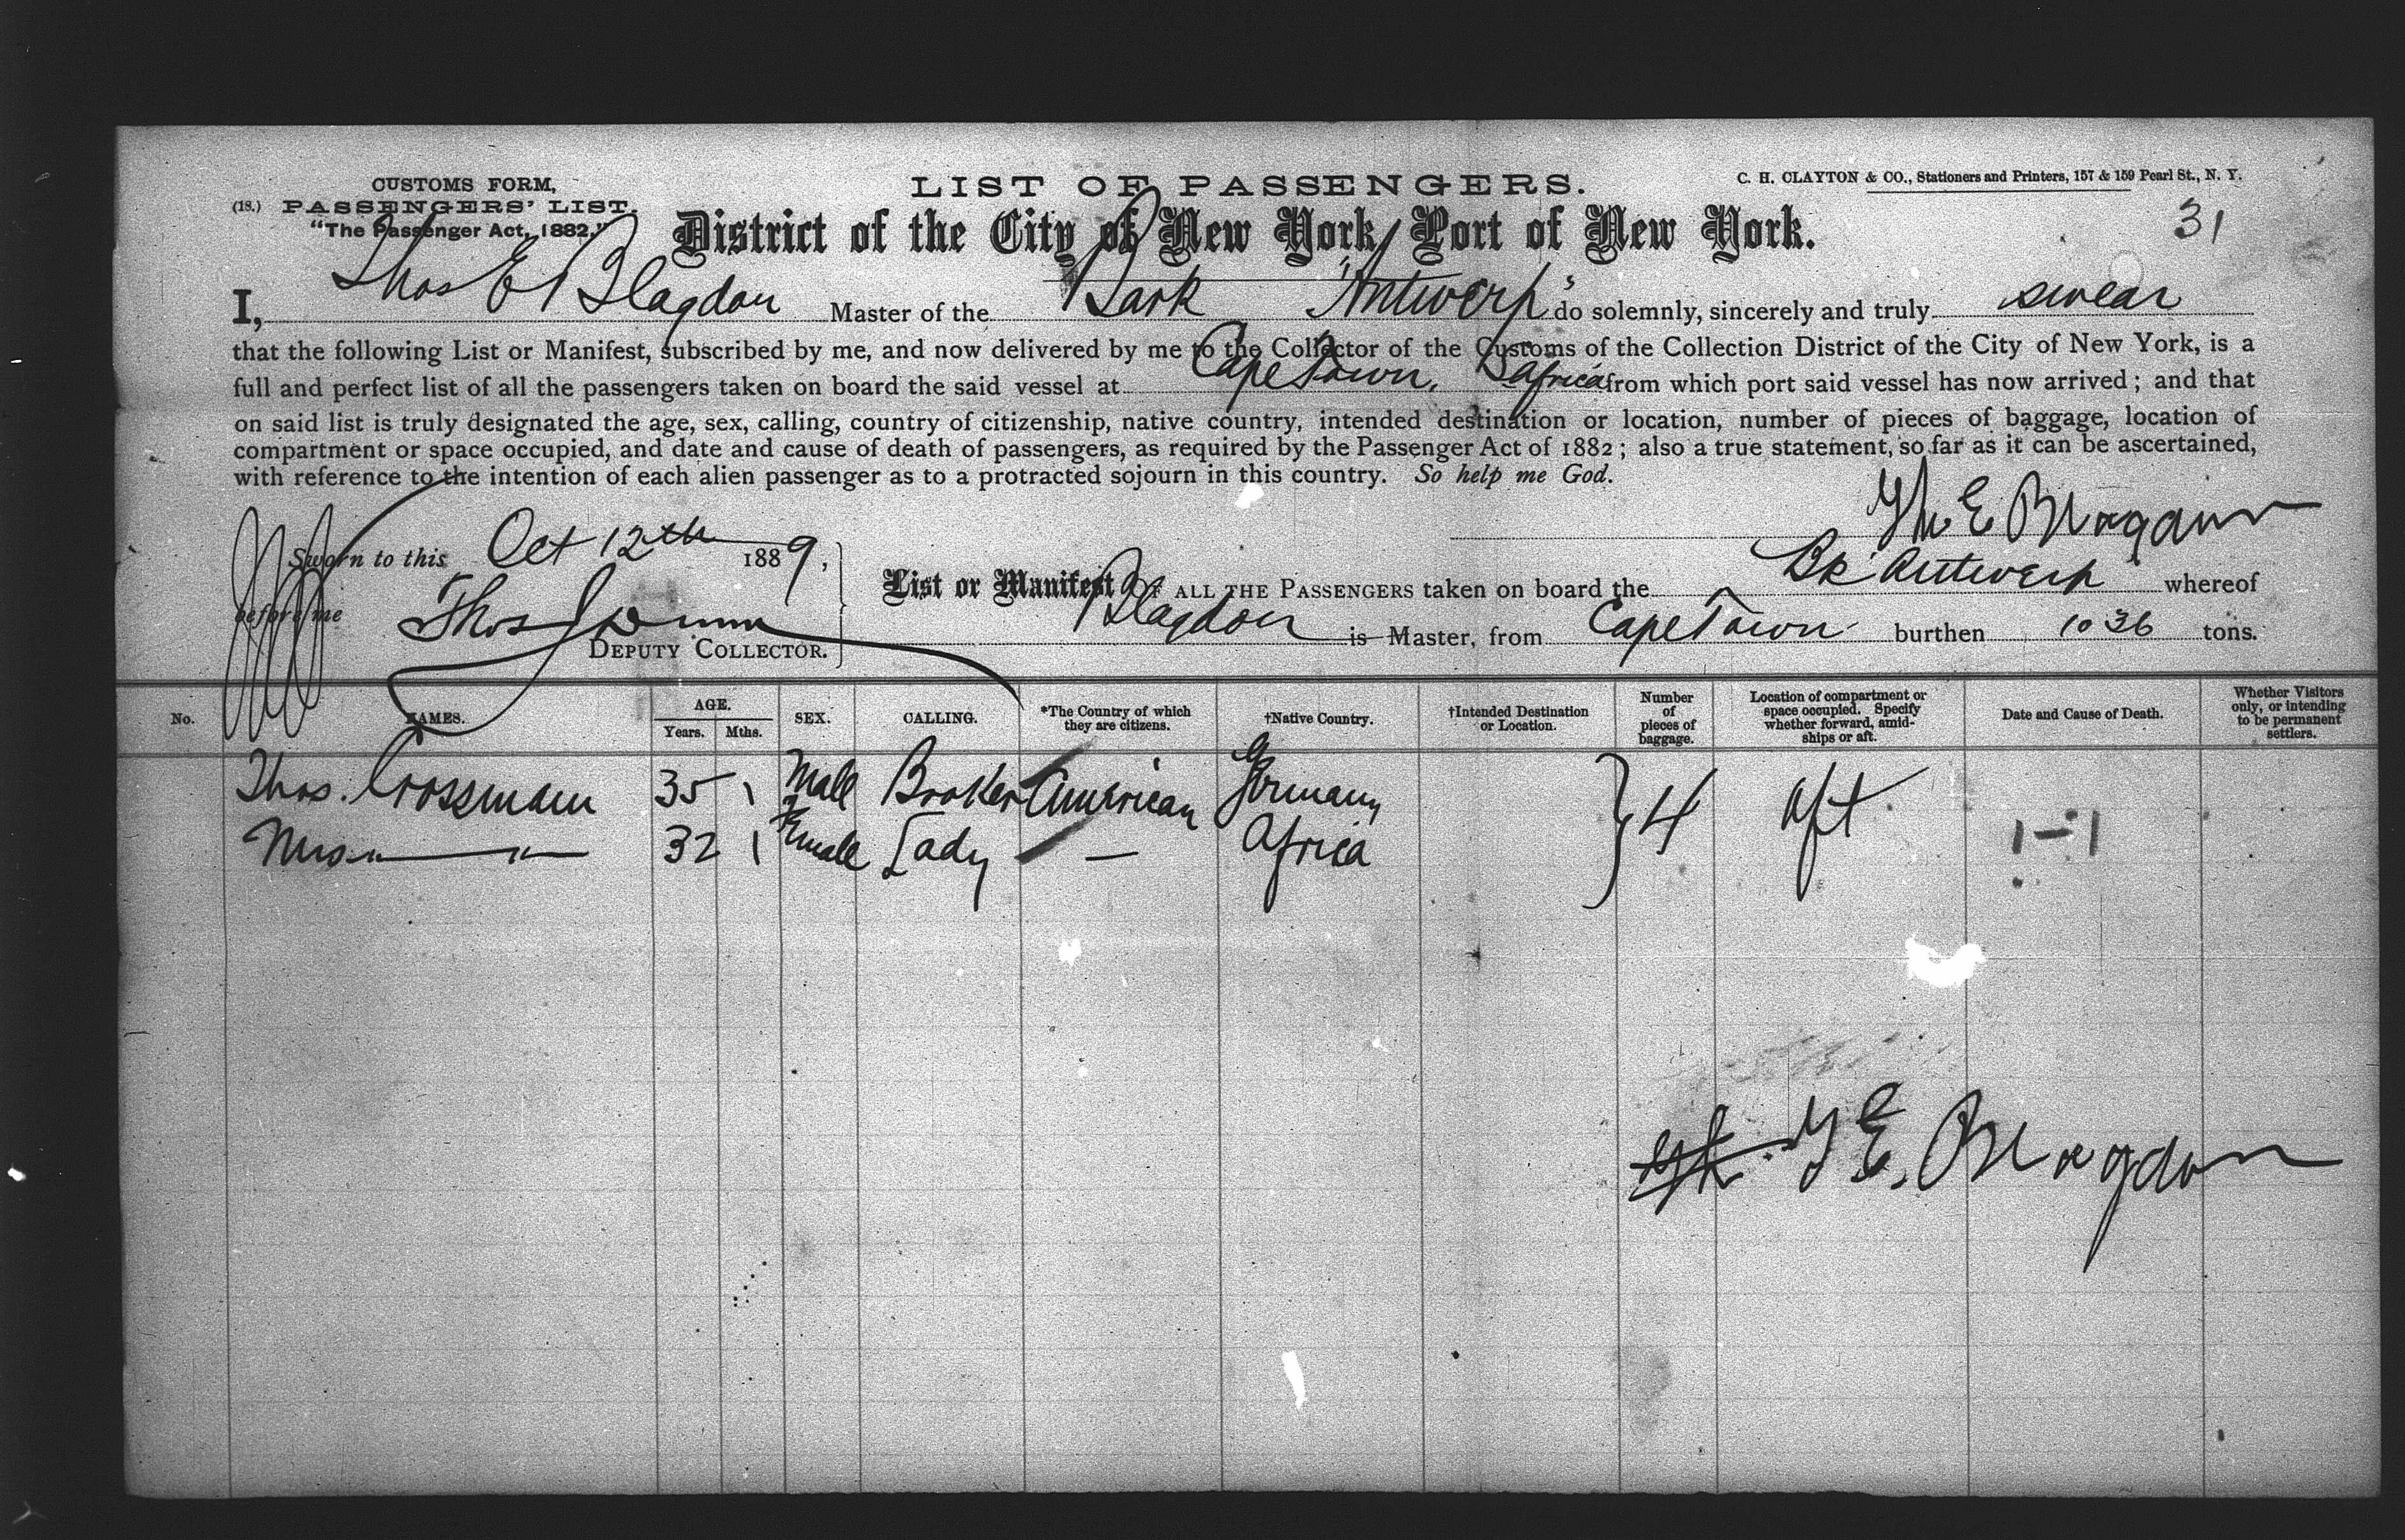 CUSTOMS FORM,
(18.) PASSENGERS' LIST.
"The Passenger Act, 1882."
LIST OF PASSENGERS.
C. H. CLAYTON & CO., Stationers and Printers, 157 & 159 Pearl St., N. Y.
District of the City of New York, Port of New York.
31
I, Thos E Blagdon Master of the Bark "Antwerp" do solemnly, sincerely and truly swear
that the following List or Manifest, subscribed by me, and now delivered by me to the Collector of the Customs of the Collection District of the City of New York, is a
full and perfect list of all the passengers taken on board the said vessel at Cape Town, S Africa from which port said vessel has now arrived; and that
on said list is truly designated the age, sex, calling, country of citizenship, native country, intended destination or location, number of pieces of baggage, location of
compartment or space occupied, and date and cause of death of passengers, as required by the Passenger Act of 1882; also a true statement, so far as it can be ascertained,
with reference to the intention of each alien passenger as to a protracted sojourn in this country. So help me God.
Th E Blagdon
Sworn to this Oct 12th 1889,
before me Thos J Dunn
DEPUTY COLLECTOR.
List or Manifest OF ALL THE PASSENGERS taken on board the Bk Antwerp whereof
Blagdon is Master, from Cape Town burthen 1036 tons.
No. NAMES. AGE. Years. Mths. SEX. CALLING. *The Country of which they are citizens. †Native Country. †Intended Destination or Location. Number of pieces of baggage. Location of compartment or space occupied. Specify whether forward, amidships or aft. Date and Cause of Death. Whether Visitors only, or intending to be permanent settlers.
Thos. Crossman 35 1 Male Broker American Germany 4 Aft 1-1
Mrs " " 32 1 Female Lady — Africa
T E. Blagdon